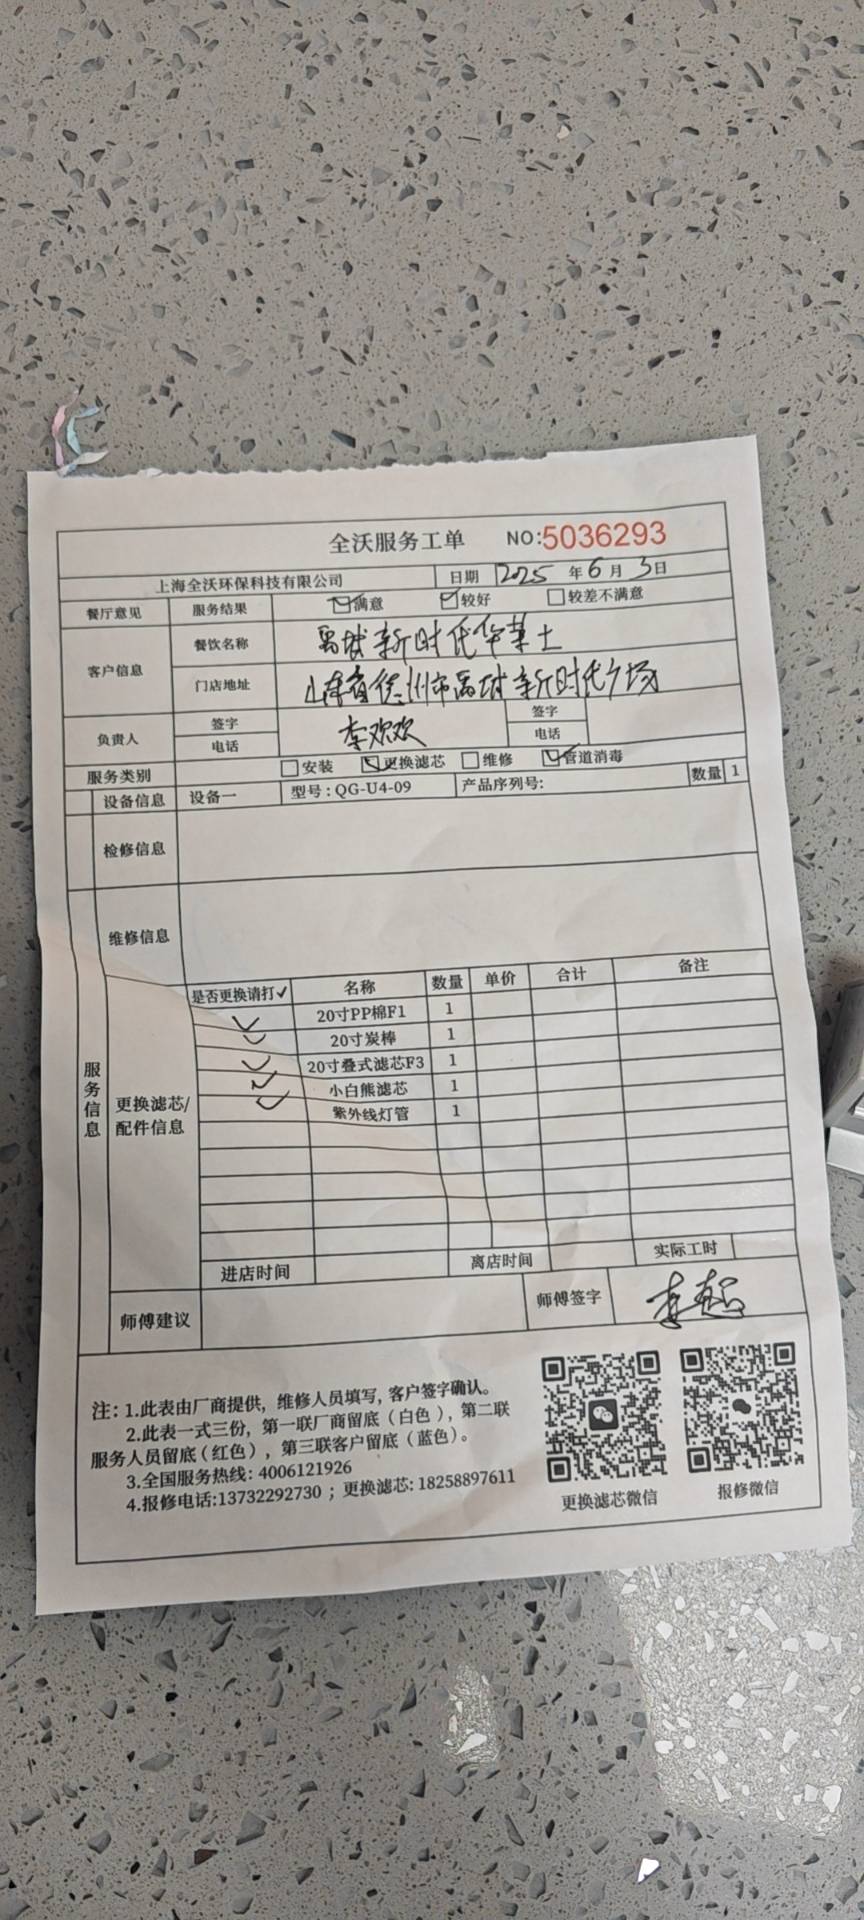 全沃服务工单 NO:5036293
上海全沃环保科技有限公司 日期 2025 年 6 月 3 日
餐厅意见 服务结果 ☑满意 ☑较好 □较差不满意
客户信息 餐饮名称 禹城新时代华莱士
门店地址 山东省德州市禹城新时代广场
负责人 签字 李欢欢 签字
电话 电话
服务类别 □安装 ☑更换滤芯 □维修 ☑管道消毒
设备信息 设备一 型号：QG-U4-09 产品序列号: 数量 1
检修信息
维修信息
服务信息
更换滤芯/配件信息
是否更换请打✓ 名称 数量 单价 合计 备注
✓ 20寸PP棉F1 1
✓ 20寸炭棒 1
✓ 20寸叠式滤芯F3 1
✓ 小白熊滤芯 1
✓ 紫外线灯管 1
进店时间 离店时间 实际工时
师傅建议 师傅签字
注：1.此表由厂商提供，维修人员填写，客户签字确认。
2.此表一式三份，第一联厂商留底（白色），第二联
服务人员留底（红色），第三联客户留底（蓝色）。
3.全国服务热线: 4006121926
4.报修电话:13732292730 ；更换滤芯: 18258897611
更换滤芯微信 报修微信